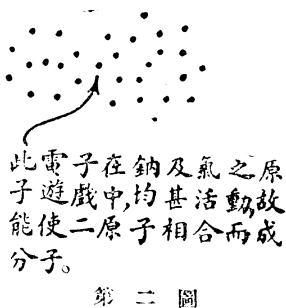 此電子在鈉及氣之原
子遊戲中,均甚活動,故
能使二原子相合而成
分子。
第二圖